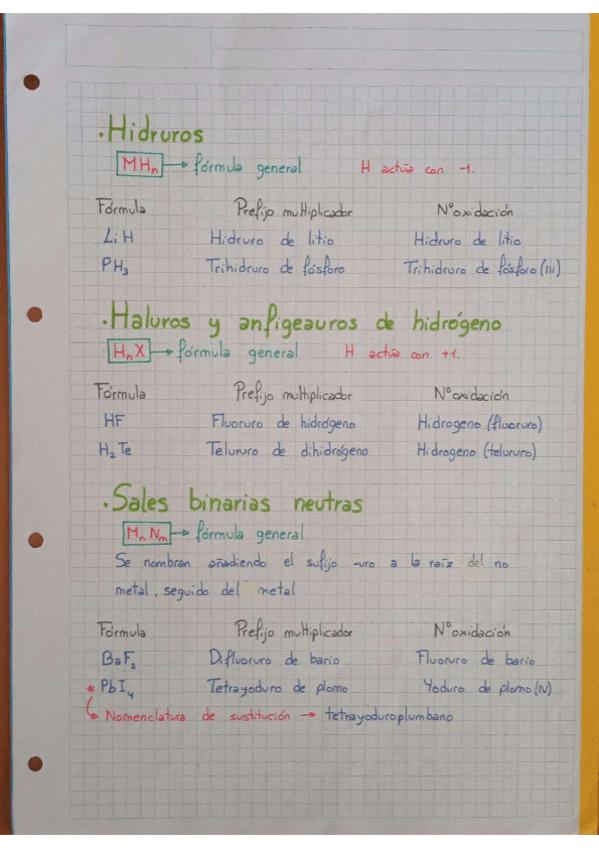 .Hidruros
MHn → fórmula general    H actúa con -1.
Fórmula    Prefijo multiplicador    Nº oxidación
LiH    Hidruro de litio    Hidruro de litio
PH3    Trihidruro de fósforo    Trihidruro de fósforo (III)
.Haluros y anfigeauros de hidrógeno
HnX → fórmula general    H actúa con +1.
Fórmula    Prefijo multiplicador    Nº oxidación
HF    Fluoruro de hidrógeno    Hidrogeno (fluoruro)
H2Te    Telururo de dihidrógeno    Hidrogeno (telururo)
.Sales binarias neutras
MnNm → fórmula general
Se nombran añadiendo el sufijo -uro a la raíz del no
metal, seguido del metal
Fórmula    Prefijo multiplicador    Nº oxidación
BaF2    Difluoruro de bario    Fluoruro de bario
* PbI4    Tetrayoduro de plomo    Yoduro de plomo (IV)
Nomenclatura de sustitución → tetrayoduroplumbano